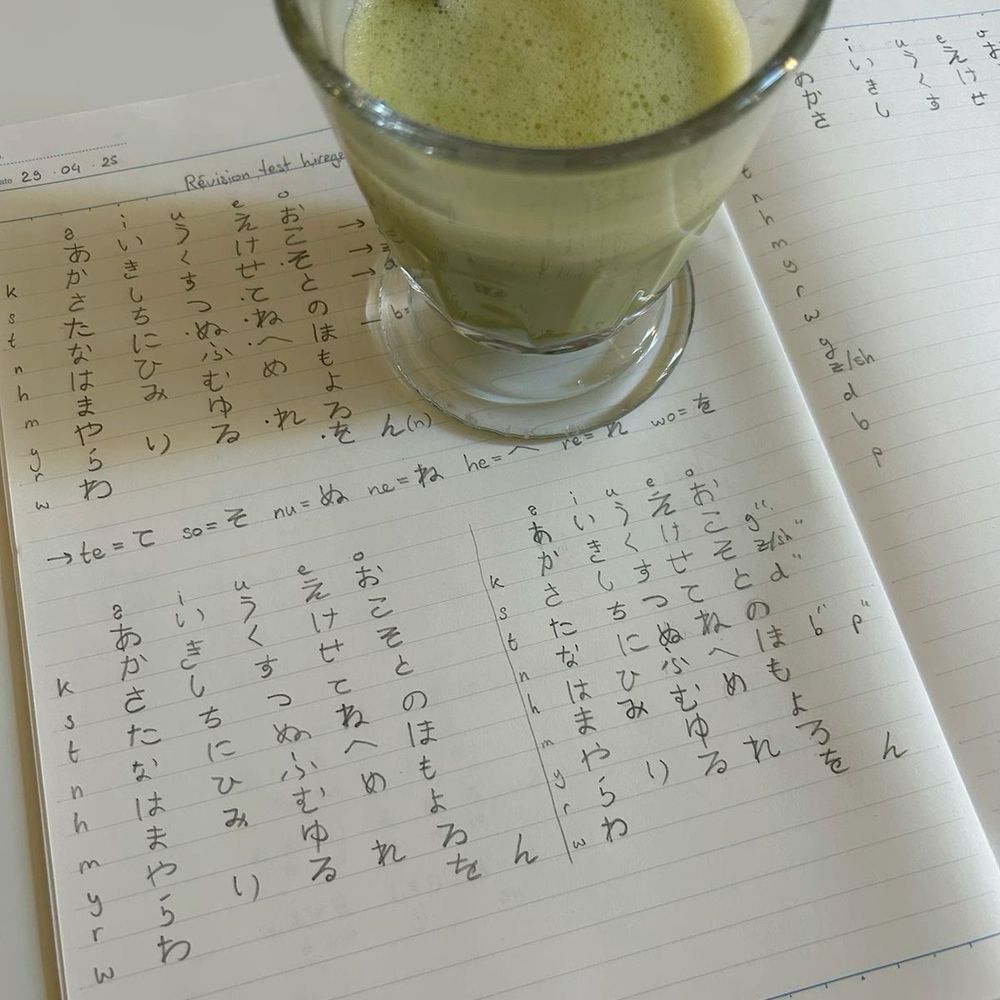 29.04.25
Révision test hirega
a i u e o
あ い う え お
k か き く け こ
s さ し す せ そ
t た ち つ て と
n な に ぬ ね の
h は ひ ふ へ ほ
m ま み む め も
y や ゆ よ
r ら り る れ ろ
w わ を ん(n)
→te=て so=そ nu=ぬ ne=ね he=へ re=れ wo=を
a i u e o
あ い う え お
k か き く け こ
s さ し す せ そ
t た ち つ て と
n な に ぬ ね の
h は ひ ふ へ ほ
m ま み む め も
y や ゆ よ
r ら り る れ ろ
w わ を ん
a i u e o
あ い う え お
k か き く け こ g"
s さ し す せ そ z/sh"
t た ち つ て と d"
n な に ぬ ね の
h は ひ ふ へ ほ b" p"
m ま み む め も
y や ゆ よ
r ら り る れ ろ
w わ を ん
i u e o
あ い う え お
か き く け
さ し す せ
t
n
h
m
y
r
w
g
z/sh
d
b
p